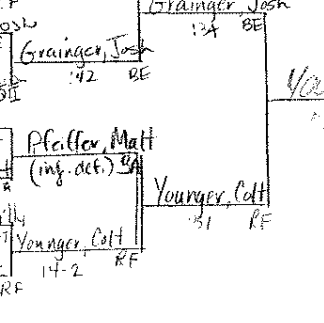 Grainger, Josh
:34 BE
Grainger, Josh
:42 BE
Pfeiffer, Matt
(inj. def.)
Younger, Colt
:51 RF
Younger, Colt
14-2 RF
RF